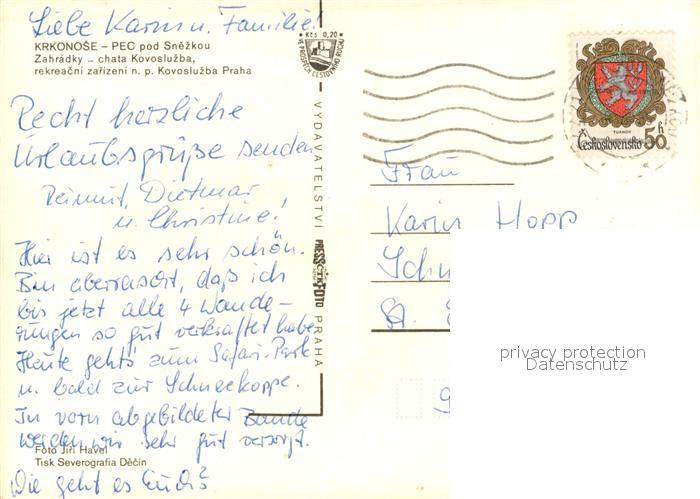 Liebe Karin u. Familie!
KRKONOŠE – PEC pod Sněžkou
Zahrádky – chata Kovoslužba,
rekreační zařízení n. p. Kovoslužba Praha
Recht herzliche
Urlaubsgrüße senden
Reimut, Dietmar
u. Christine!
Hier ist es sehr schön.
Bin überrascht, daß ich
bis jetzt alle 4 Wande-
rungen so gut verkraftet habe.
Heute geht's zum Safari-Park
u. bald zur Schneekoppe.
In vorn abgebildeter Baude
werden wir sehr gut versorgt.
Foto Jiří Havel
Tisk Severografia Děčín
Wie geht es
Kčs 0,20
VE PROSPĚCH CESTOVNÍHO RUCHU
VYDAVATELSTVÍ PRESSFOTO PRAHA
ČTK
TURNOV
Československo 50 h
Frau
Karin Hopp
Schn
St.
9
privacy protection
Datenschutz